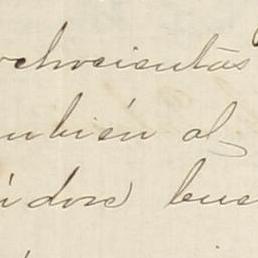 ochocientas
ambién al
idore bue